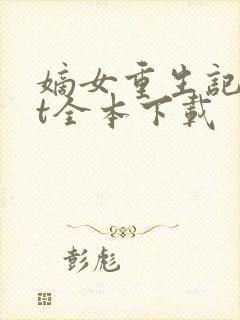 嫡女重生記
t全本下載
彭彪